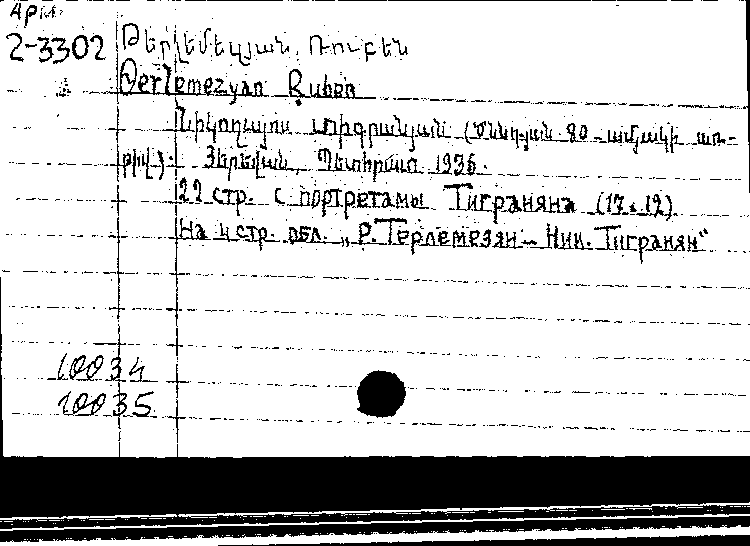 Арм.
2-3302 Թերլեմեզյան, Ռուբեն
Terlemezyan Ruben
Նիկողայոս Տիգրանյան (Ծննդյան 80-ամյակի առ-
թիվ). Յերեվան, Պետհրատ 1936.
22 стр. с портретамы Тиграняна (17х12)
На 4 стр. обл. „Р. Терлемезян – Ник. Тигранян“
10034
10035